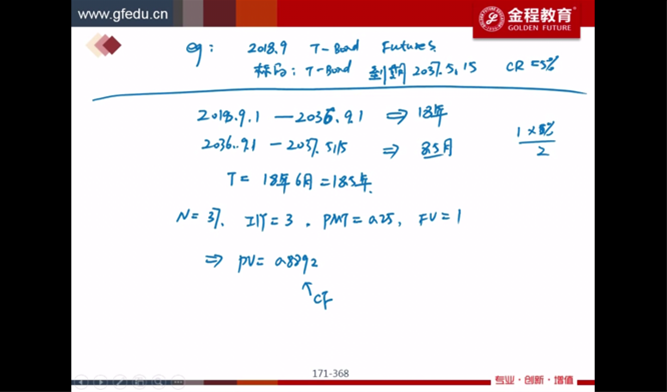 www.gfedu.cn
金程教育
GOLDEN FUTURE
eg: 2018.9 T-Bond Futures.
标的: T-Bond 到期 2037.5.15 CR=5%
2018.9.1 — 2036.9.1 ⇒ 18年
2036.9.1 — 2037.5.15 ⇒ 8.5月
1×5%
2
T= 18年6月=18.5年
N=37. I/Y=3. PMT=0.025, FV=1
⇒ PV=0.8892
↑CF
171-368
专业·创新·增值